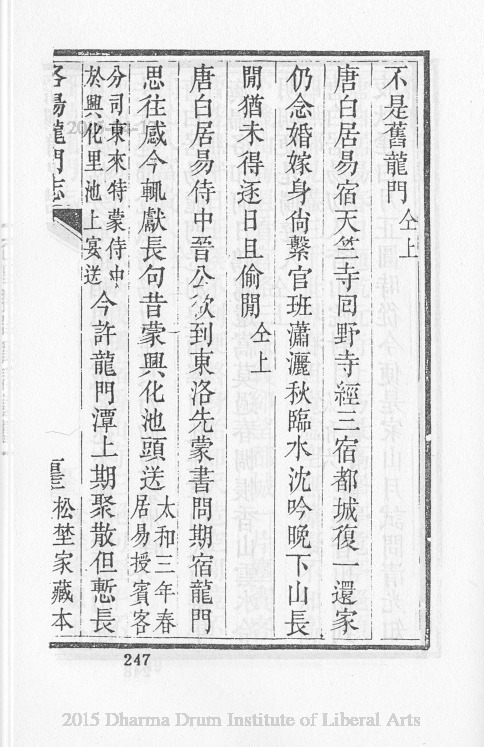 不是舊龍門仝上
唐白居易宿天竺寺回野寺經三宿都城復一還家
仍念婚嫁身尙繫官班瀟灑秋臨水沈吟晚下山長
閒猶未得逐日且偷閒仝上
唐白居易侍中晉公欲到東洛先蒙書問期宿龍門
思往感今輒獻長句昔蒙興化池頭送太和三年春居易授賓客
分司東來特蒙侍中於興化里池上宴送今許龍門潭上期聚散但慙長
洛陽龍門志
松埜家藏本
247
2015 Dharma Drum Institute of Liberal Arts